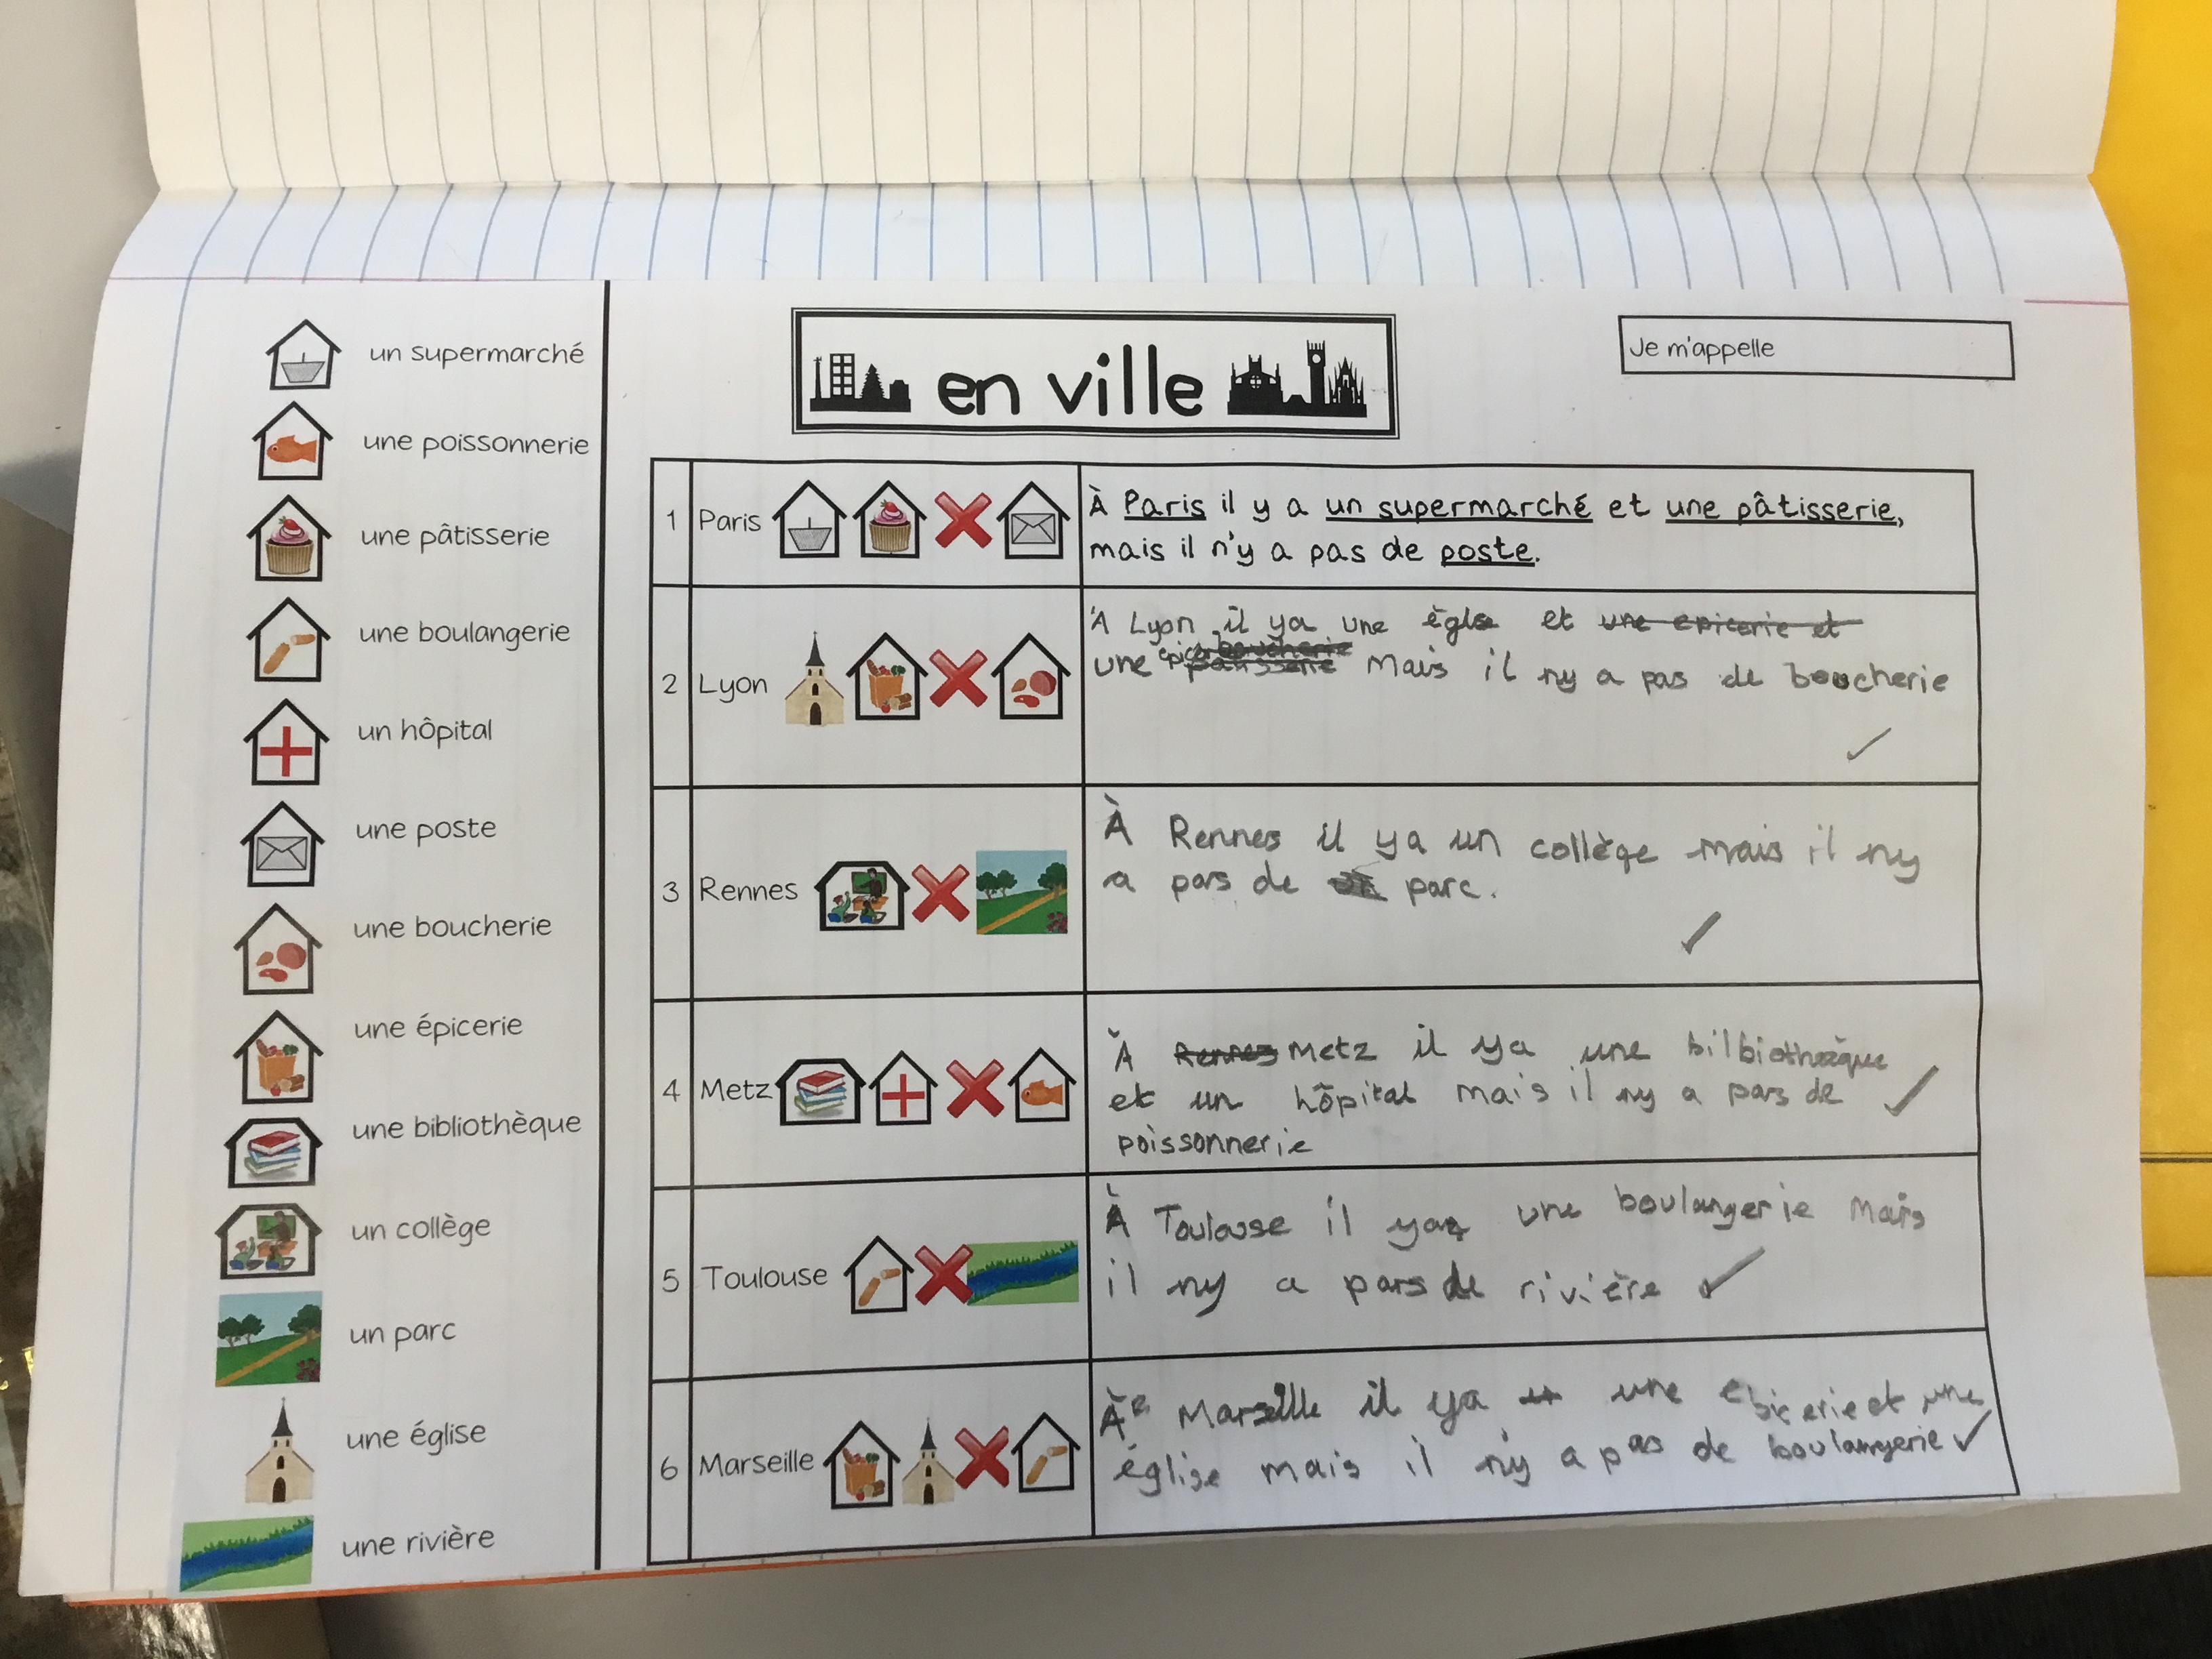 un supermarché
une poissonnerie
une pâtisserie
une boulangerie
un hôpital
une poste
une boucherie
une épicerie
une bibliothèque
un collège
un parc
une église
une rivière
en ville
Je m'appelle
1 Paris
À Paris il y a un supermarché et une pâtisserie,
mais il n'y a pas de poste.
2 Lyon
À Lyon il ya une églse et une epicerie et
une mais il ny a pas de boucherie
3 Rennes
À Rennes il ya un collège mais il ny
a pas de parc.
4 Metz
À Rennes Metz il ya une bilbiothèque
et un hôpital mais il ny a pas de
poissonnerie
5 Toulouse
À Toulouse il ya une boulangerie mais
il ny a pas de rivière
6 Marseille
À Marseille il ya une et une
église mais il n'y a pas de boulangerie